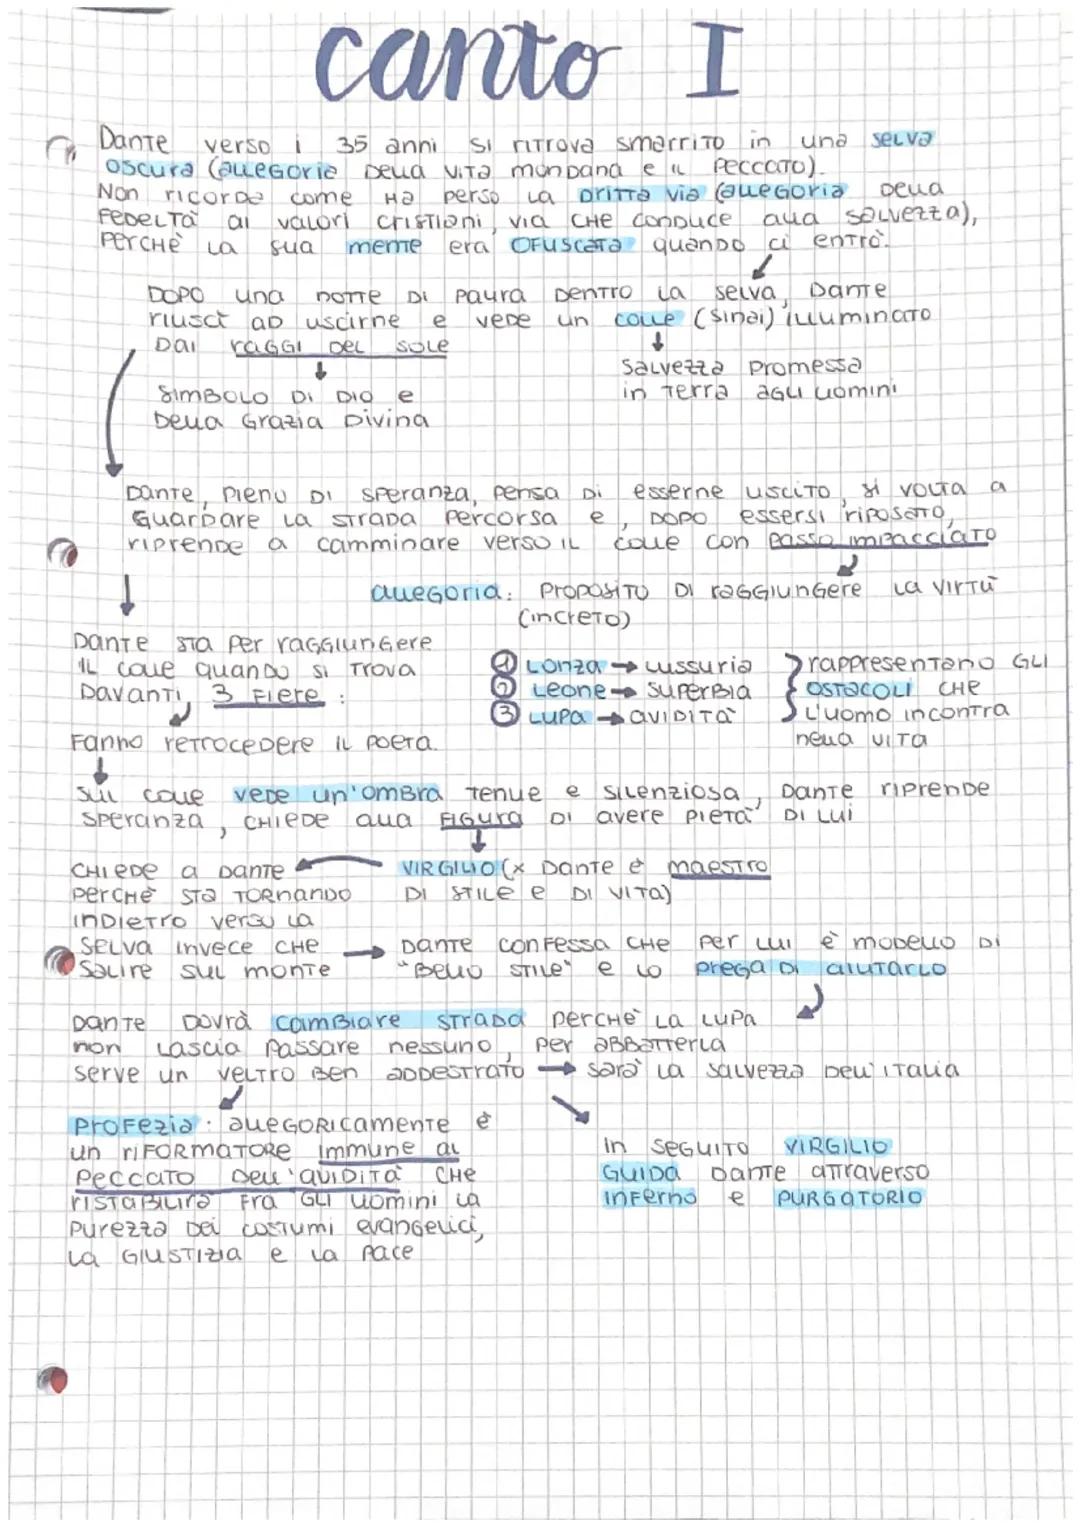 canto I
Dante verso i 35 anni si ritrova smarrito in una selva
oscura (allegoria della vita mondana e il peccato).
Non ricorda come ha perso la dritta via (allegoria della
fedeltà ai valori cristiani, via che conduce alla salvezza),
perchè la sua mente era ofuscata quando ci entrò.
Dopo una notte di paura dentro la selva, Dante
riuscì ad uscirne e vede un colle (Sinai) illuminato
dai raggi del sole
Salvezza promessa
in terra agli uomini
Simbolo di Dio e
della Grazia Divina
Dante, pieno di speranza, pensa di esserne uscito, si volta a
guardare la strada percorsa e, dopo essersi riposato,
riprende a camminare verso il colle con passo impacciato
allegoria: proposito di raggiungere la virtù
(increto)
Dante sta per raggiungere
il colle quando si trova
davanti 3 fiere:
1 Lonza → lussuria
2 Leone → superbia
3 Lupa → avidità
rappresentano gli
ostacoli che
l'uomo incontra
nella vita
Fanno retrocedere il poeta.
Sul colle vede un'ombra tenue e silenziosa, Dante riprende
speranza, chiede alla figura di avere pietà di lui
VIRGILIO (x Dante è maestro
di stile e di vita)
Chiede a Dante
perchè sta tornando
indietro verso la
selva invece che
salire sul monte
→ Dante confessa che per lui è modello di
"bello stile" e lo prega di aiutarlo
Dante dovrà cambiare strada perchè la lupa
non lascia passare nessuno, per abbatterla
serve un veltro ben addestrato → sarà la salvezza dell'Italia
Profezia: allegoricamente è
un riformatore immune al
peccato dell'avidità che
ristabilirà fra gli uomini la
purezza dei costumi evangelici,
la giustizia e la pace
In seguito VIRGILIO
GUIDA Dante attraverso
inferno e PURGATORIO